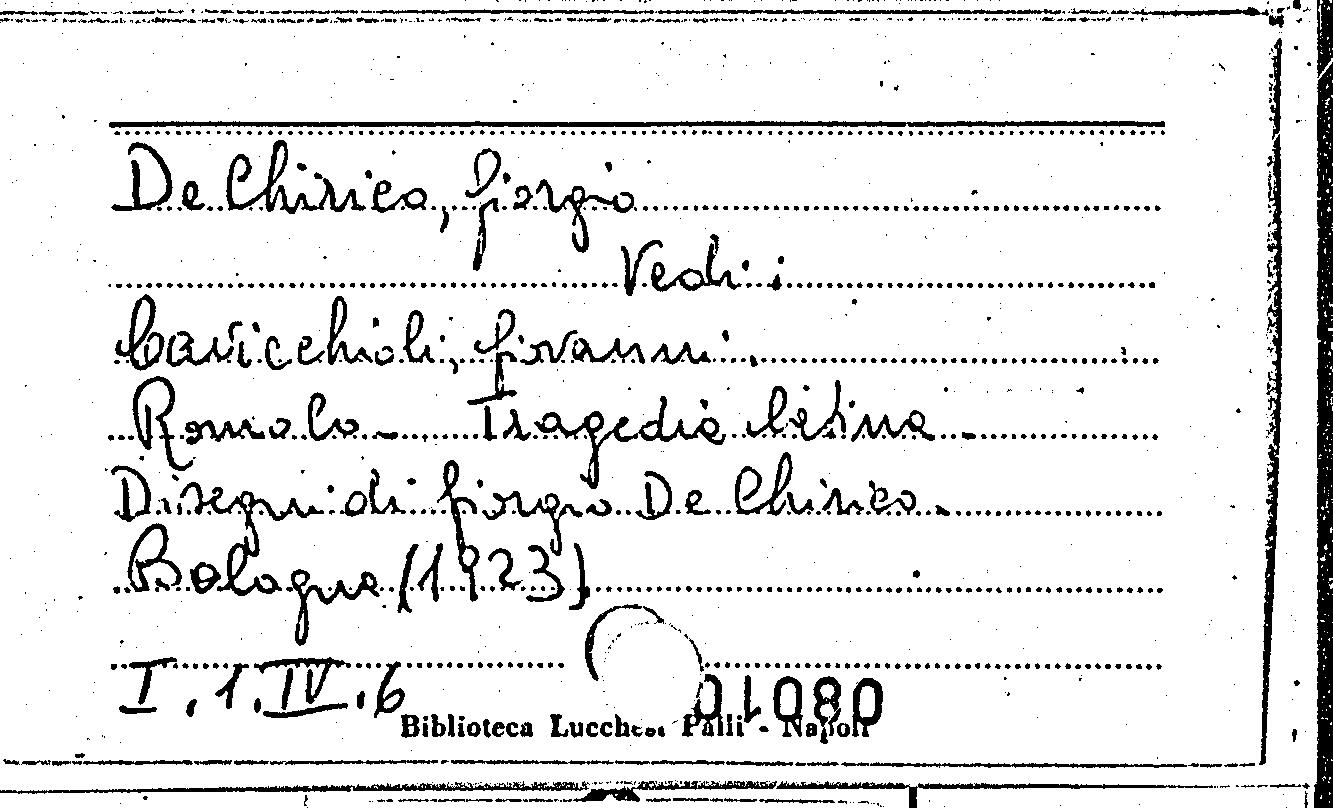 De Chirico, Giorgio
Vedi:
Cavicchioli, Giovanni.
Romolo - Tragedia latina -
Disegni di Giorgio De Chirico.
Bologna (1923)
I.1.IV.6
Biblioteca Lucchesi Palli - Napoli